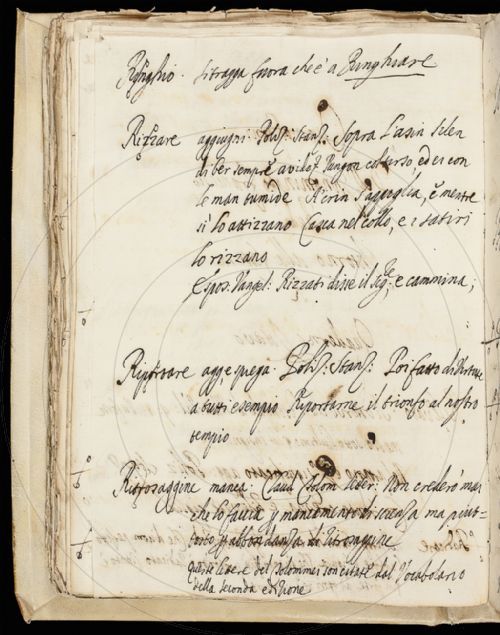 Ringhio. si tragga fuora che è a Ringhiare
Rizzare aggiugni. Poliz: Stanz: Sopra l'asin Silen
di ber sempre avido: Pangon coll'arso, ed ei con
le man tumide A'crin s'appiglia, e mentre
sì lo attizzano Casca nel collo, e i satiri
lo rizzano
Espos: Vangel: Rizzati disse il Sig.re e cammina;
Riportare agg. e spiega. Poliz: Stanz: Poi fatto di Virtute
a tutti esempio Riportarne il trionfo al nostro
tempio
Ritrosaggine manca. Claud. Tolom. letter: Non crederò mai
che lo faccia p mancamento di scienza ma piut-
tosto p abbondanza di Ritrosaggine
queste lettere del Tolommei son citate dal Vocabolario
della seconda edizione